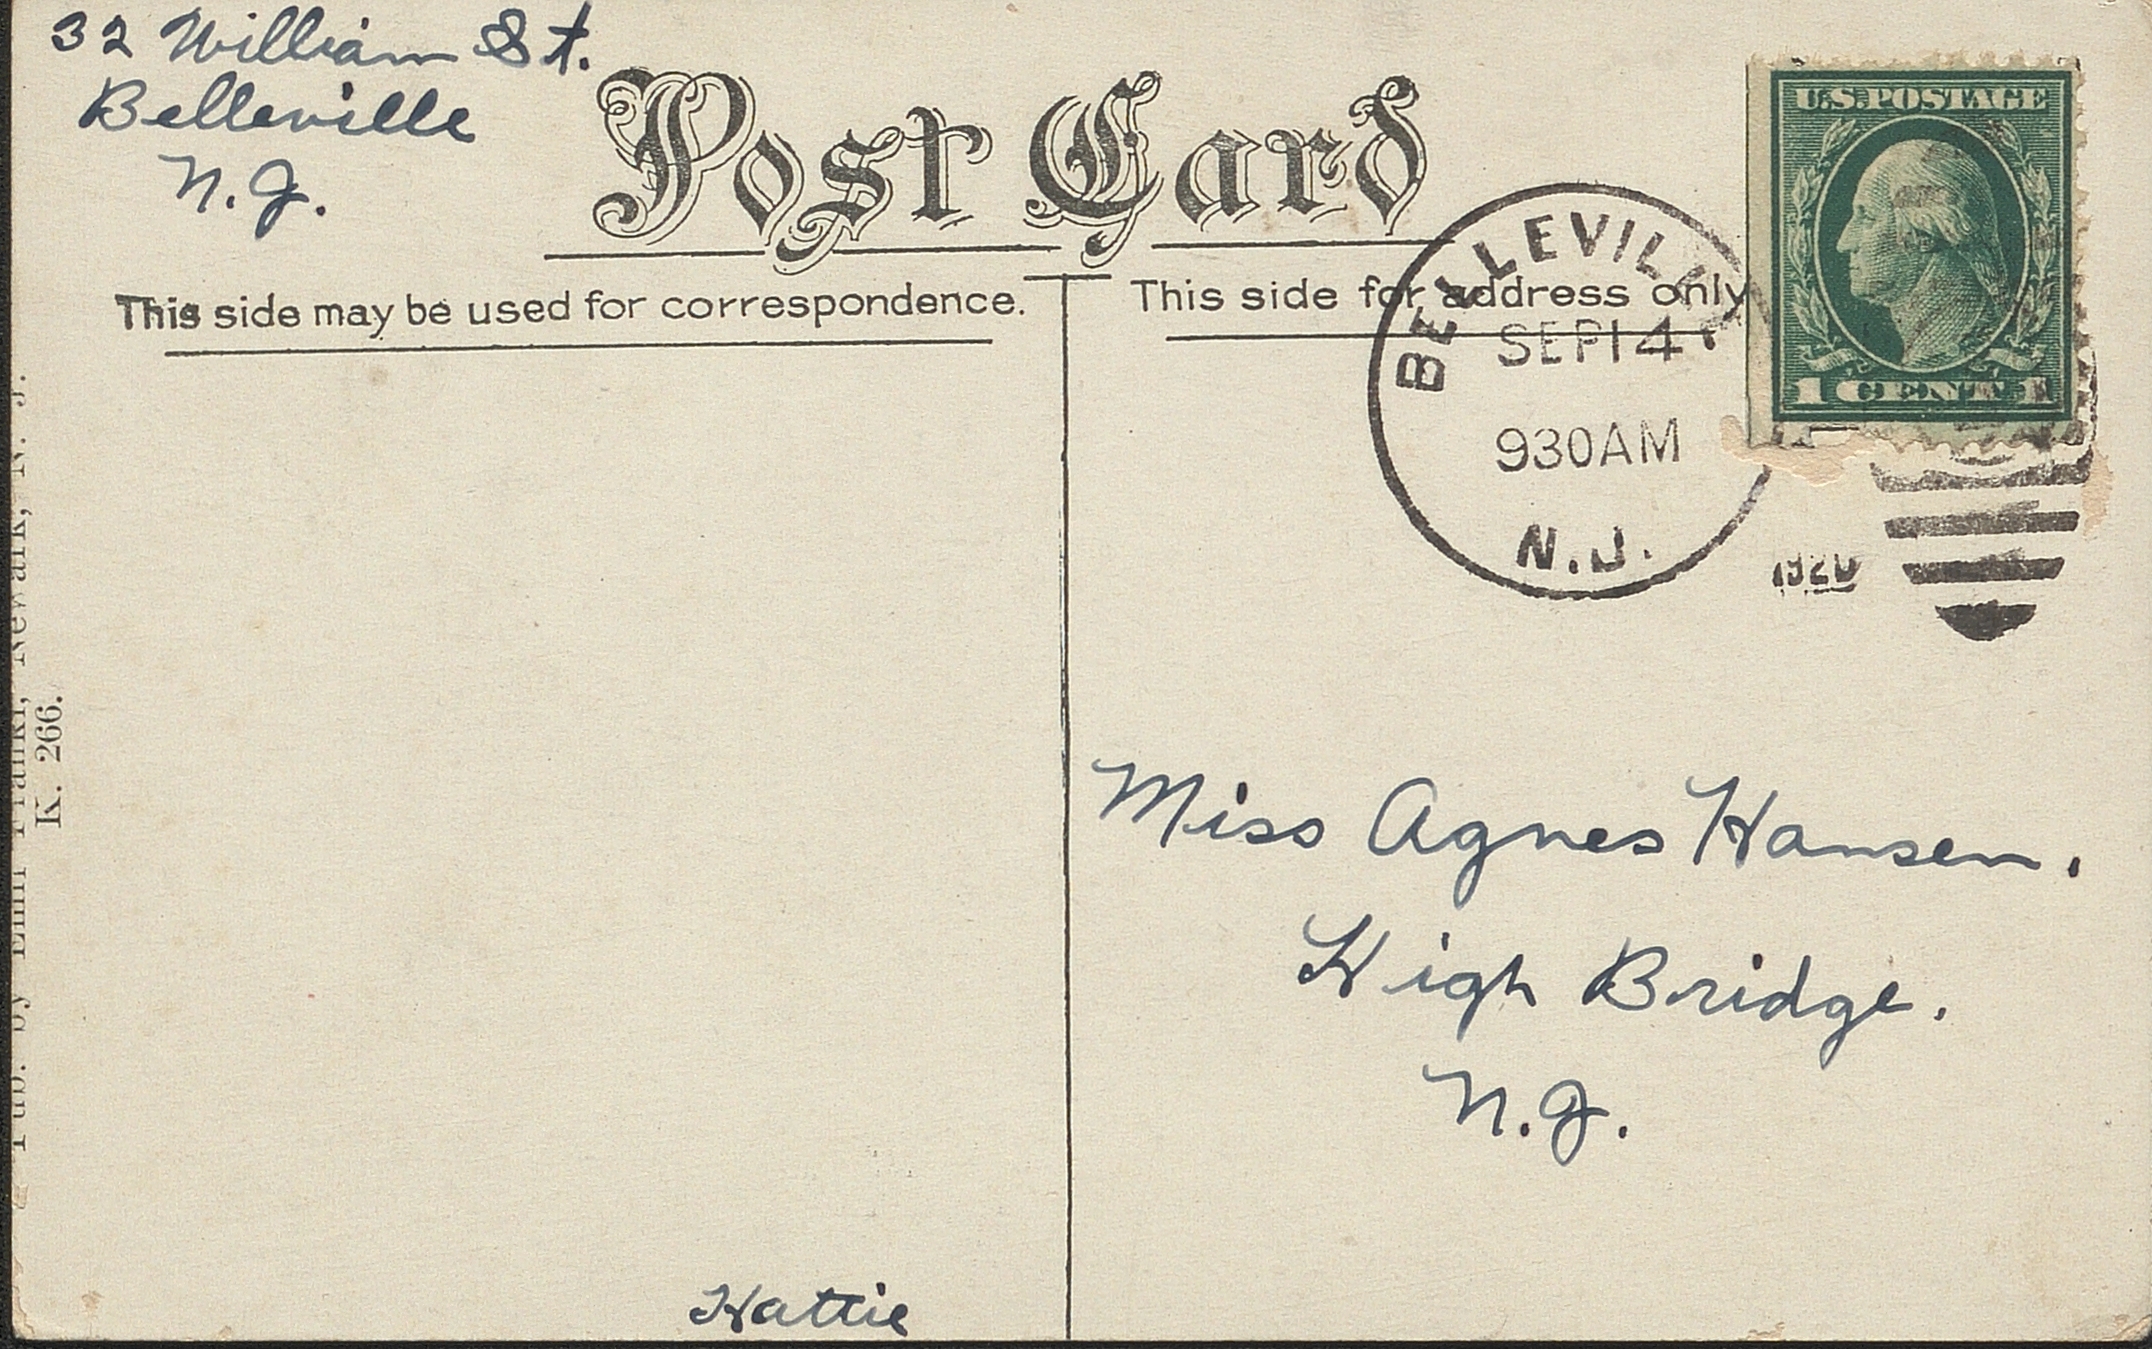 32 William St.
Belleville
N.J.
Post Card
This side may be used for correspondence.
This side for address only.
U.S. POSTAGE
1 CENT 1
BELLEVILLE
SEP 14
930AM
N.J.
1920
Miss Agnes Hansen.
High Bridge.
N.J.
Hattie
Pub. by Emil Frankl, Newark, N. J.
K. 266.